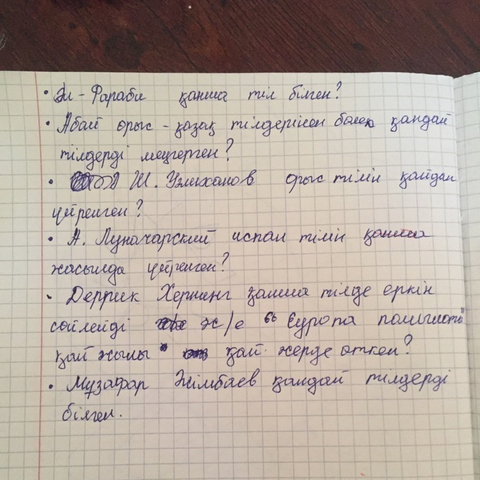 • Әл-Фараби қанша тіл білген?
• Абай орыс-қазақ тілдерінен бөлек қандай
тілдерді меңгерген?
• Ш. Уәлиханов орыс тілін қайдан
үйренген?
• А. Луначарский испан тілін қанша
жасында үйренген?
• Деррик Хернинг қанша тілде еркін
сөйлейді ж/е "Европа полиглоты"
қай жылы қай жерде өткен?
• Музафар Әлімбаев қандай тілдерді
білген.